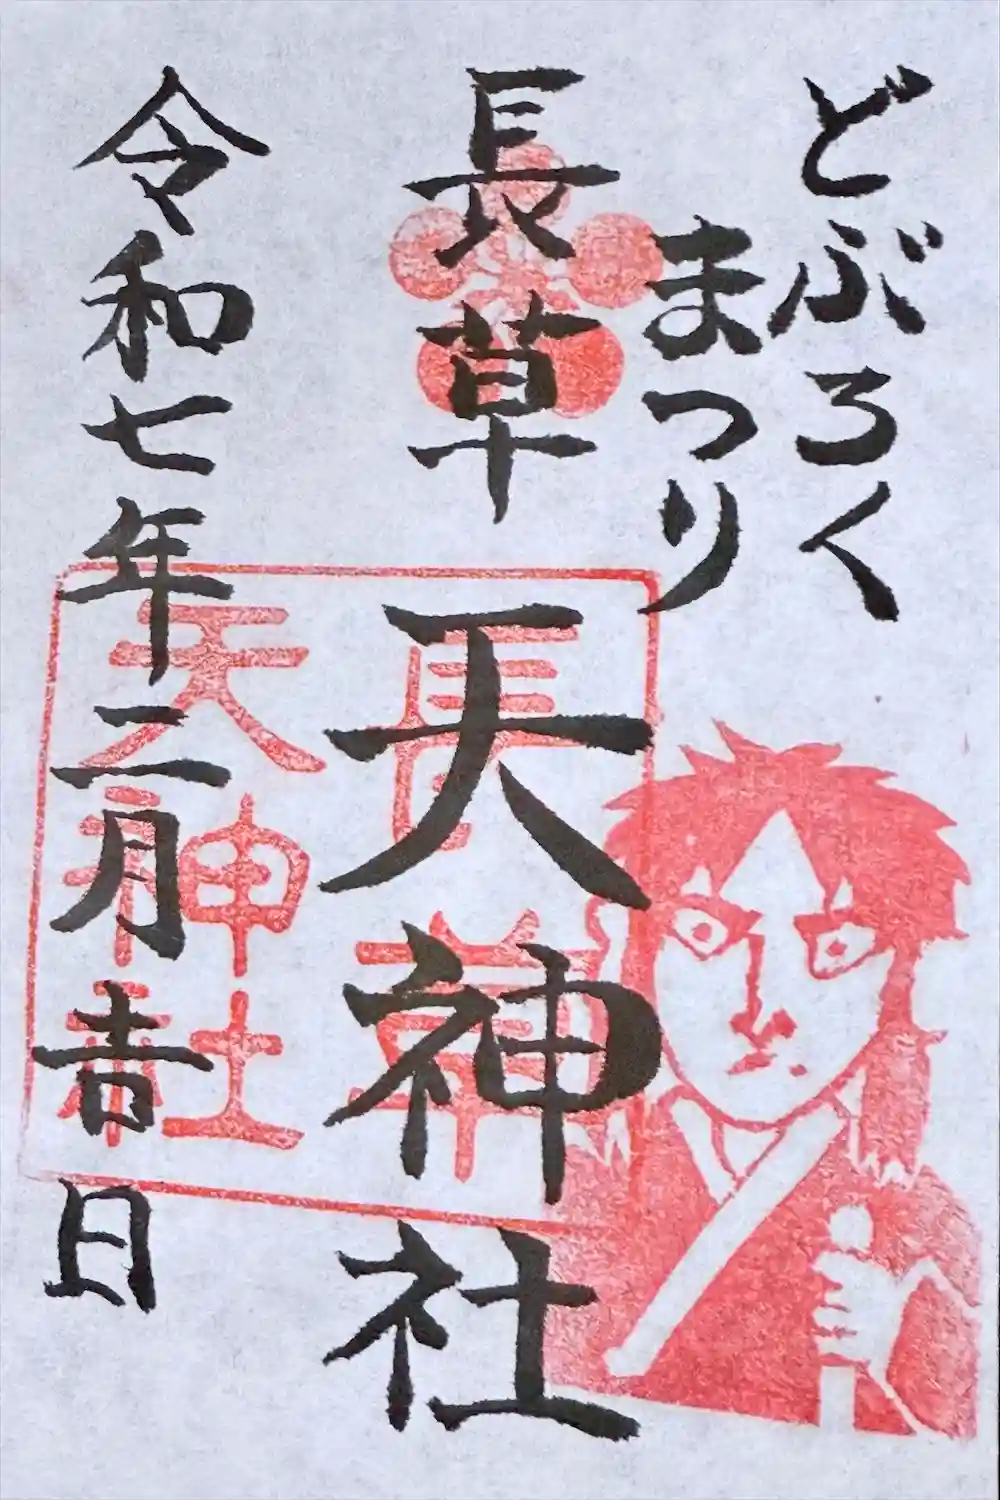 どぶろく
まつり
長草天神社
令和七年二月吉日
長草
天神社